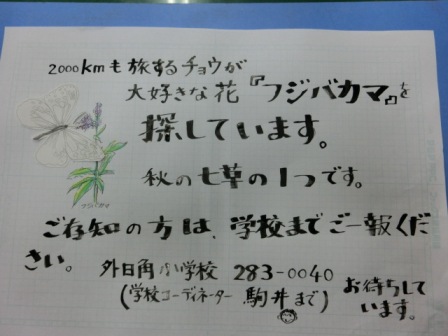 2000kmも旅するチョウが
大好きな花『フジバカマ』を
探しています。
秋の七草の1つです。
フジバカマ
ご存知の方は、学校までご一報くだ
さい。
外日角小学校 283-0040
(学校コーディネーター 駒井まで)
お待ちして
います。